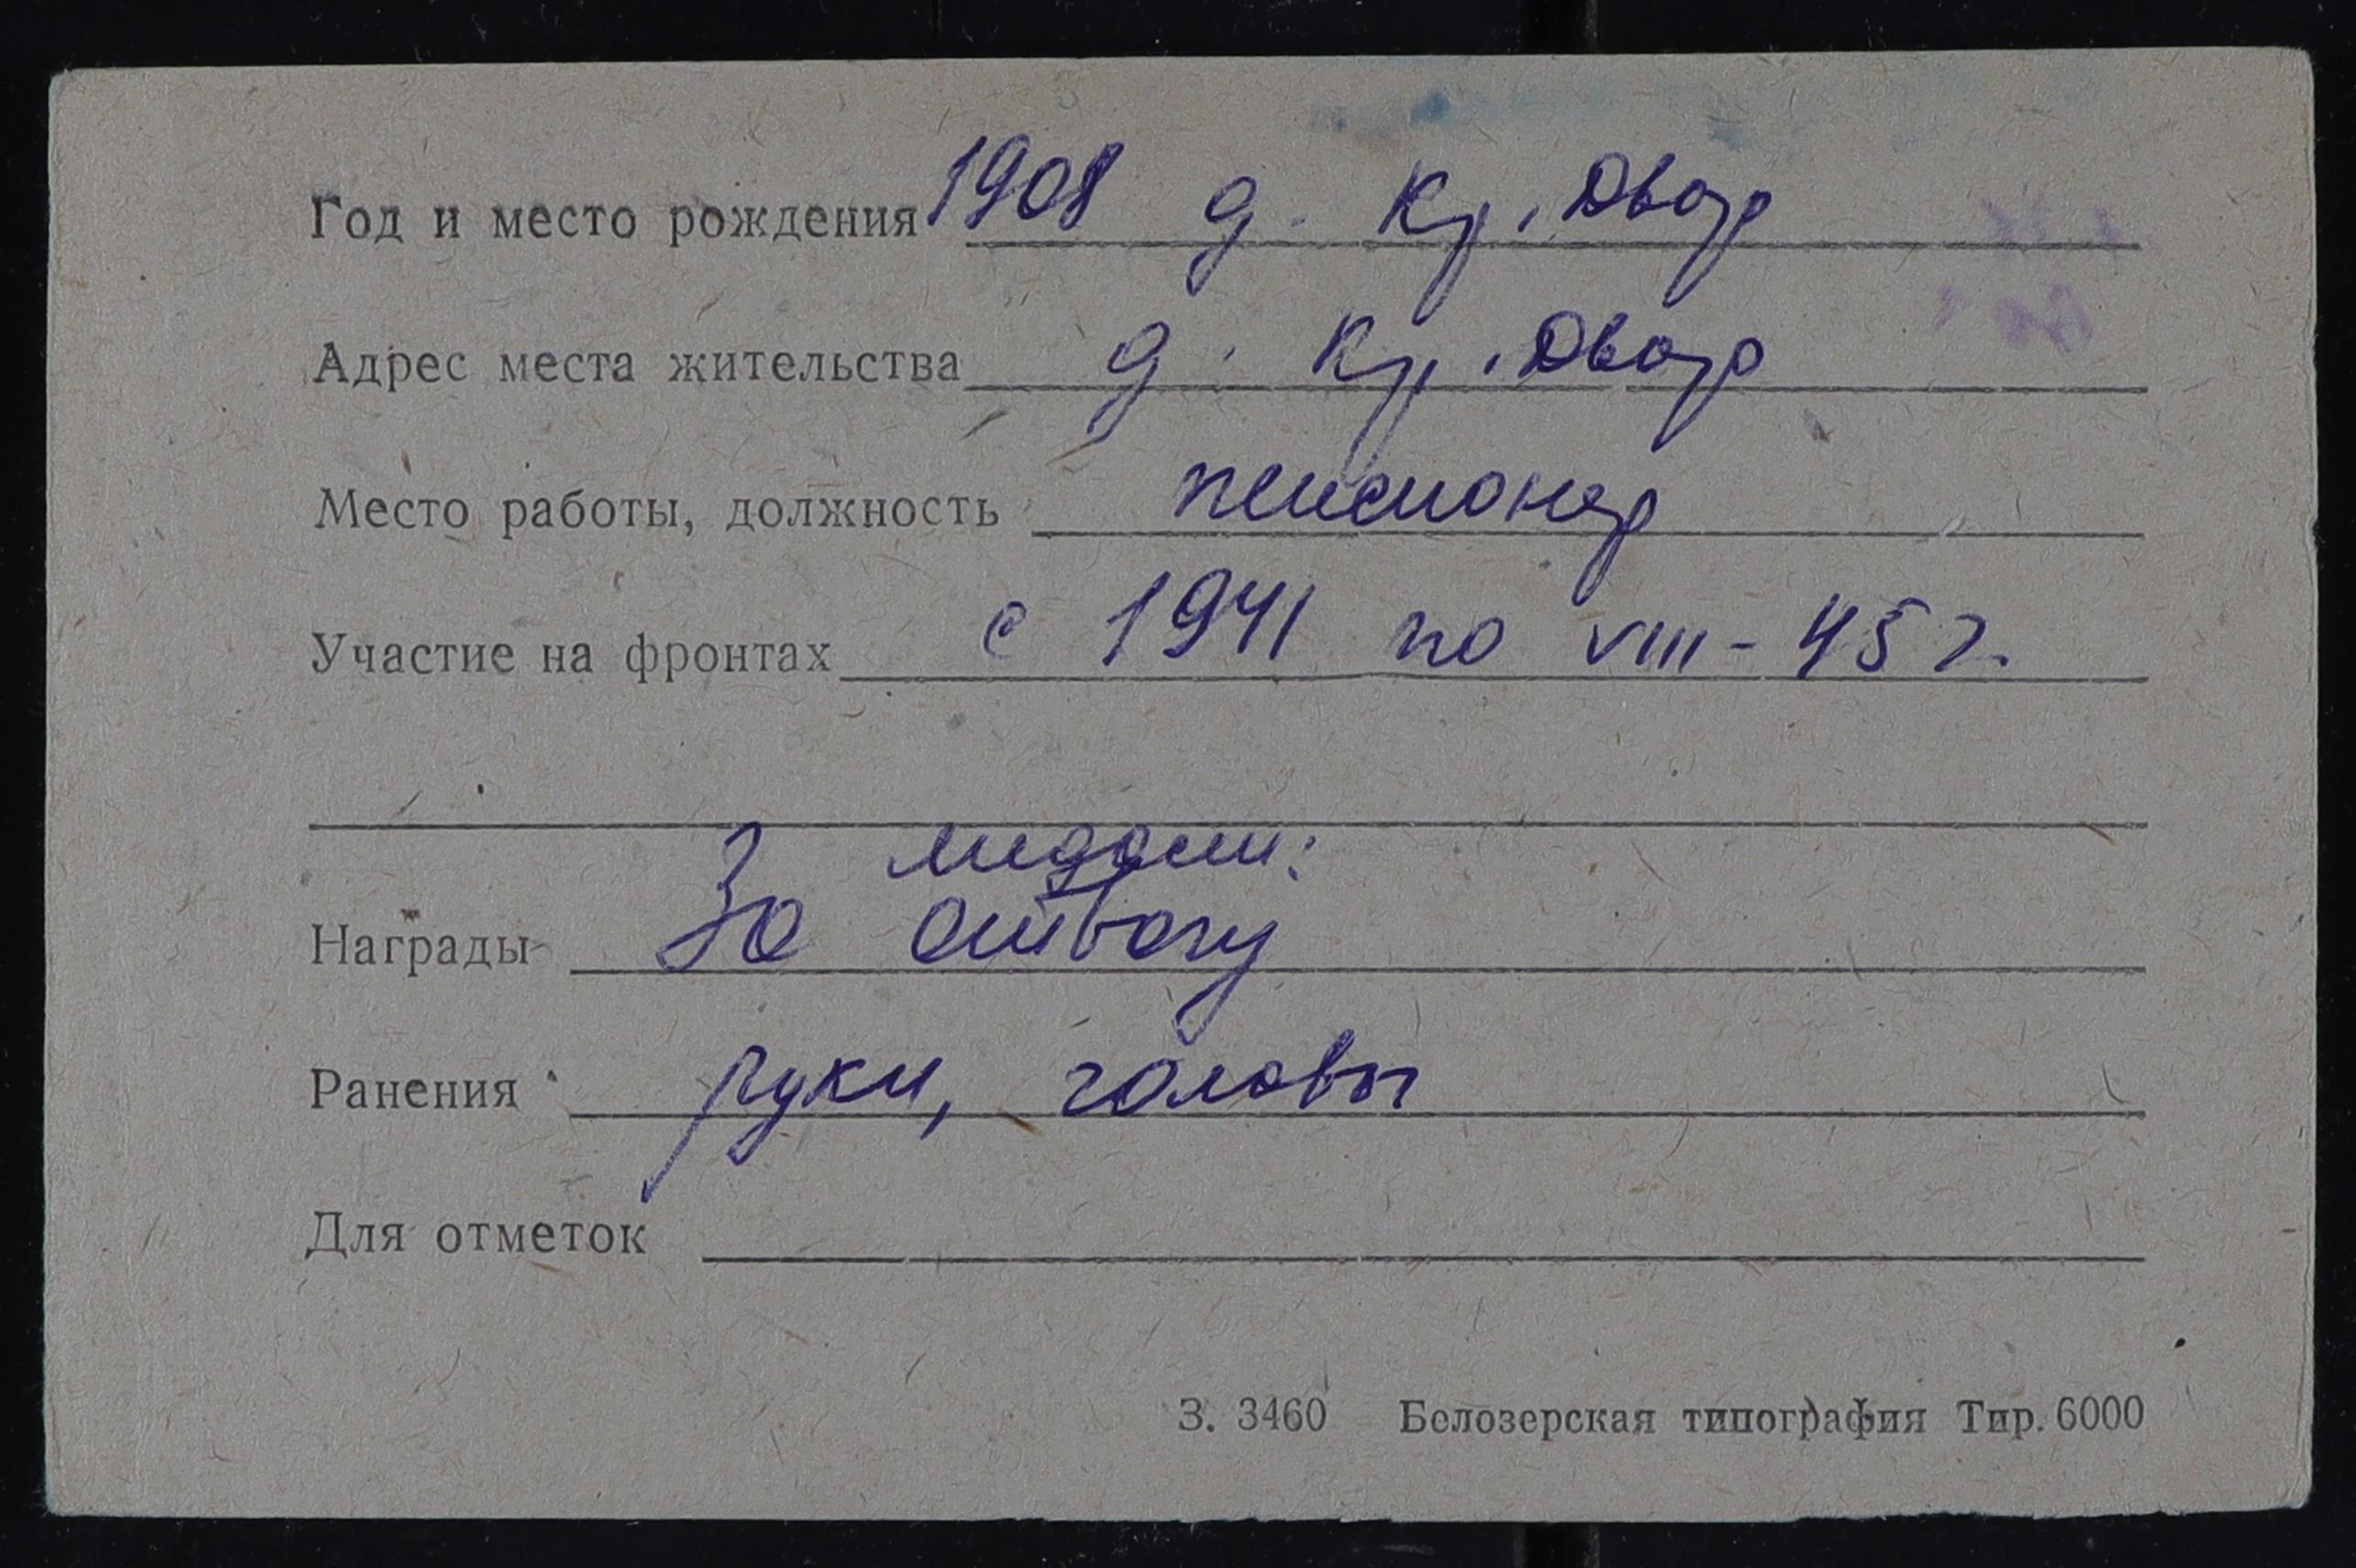 Год и место рождения 1908 д. Кр. Двор
Адрес места жительства д. Кр. Двор
Место работы, должность пенсионер
Участие на фронтах с 1941 по VIII - 45 г.
медали:
Награды За отвагу
Ранения руки, головы
Для отметок
З. 3460 Белозерская типография Тир. 6000